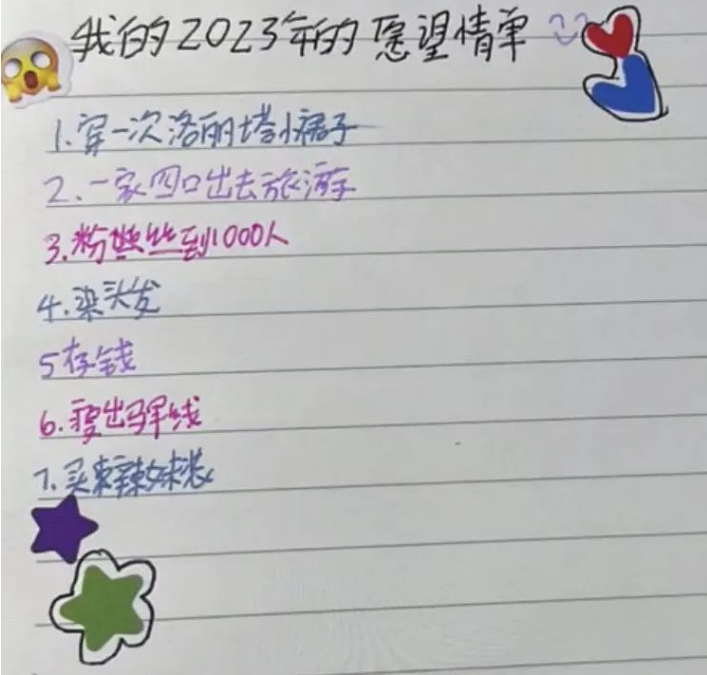 我的2023年的愿望情单
1.穿一次洛丽塔小裙子
2.一家四口出去旅游
3.粉丝到1000人
4.染头发
5存钱
6.瘦出马甲线
7.买辣妹装